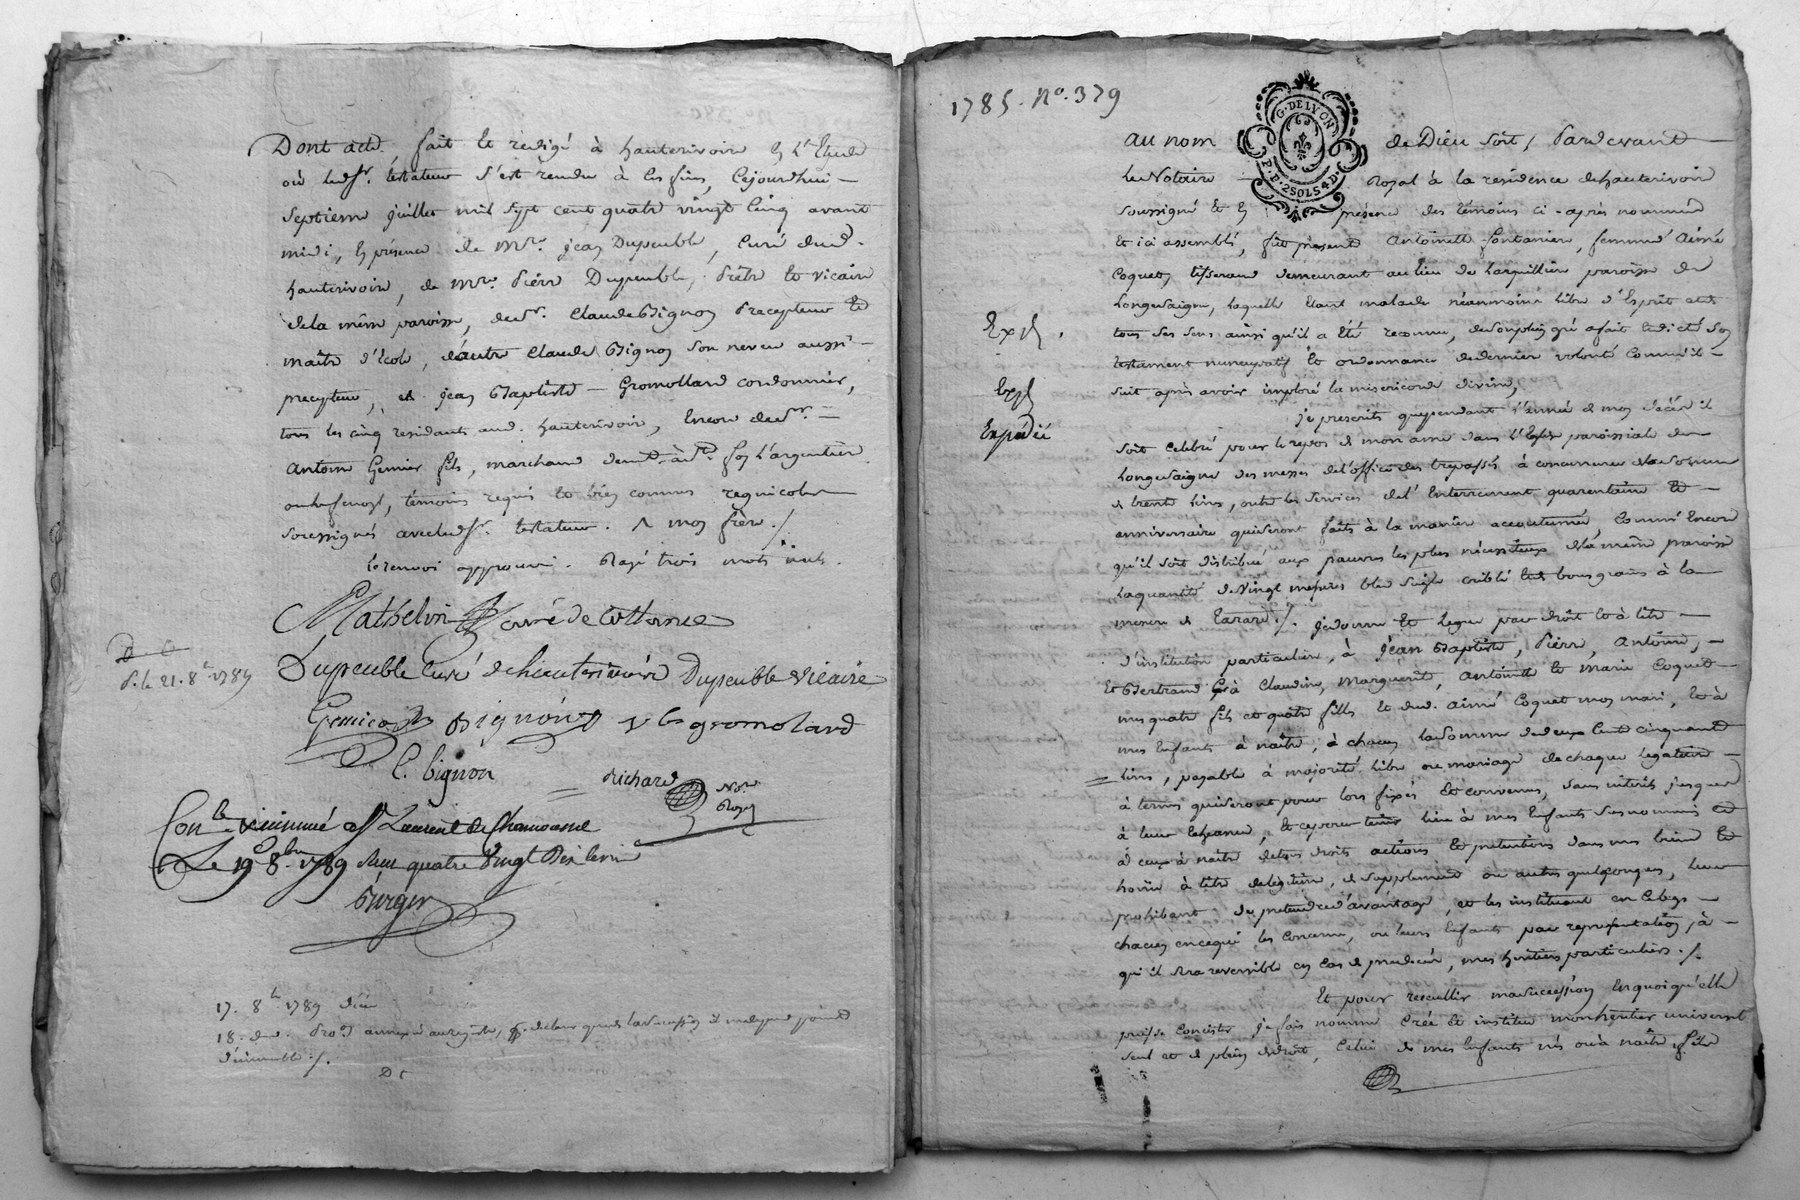 Dont acte fait et redigé à hauterivoire En L'Etude
où ledsr. testateur s'est rendu à Ces fins, Cejourdhui
septieme juillet mil sept cent quatre vingt Cinq avant
midi, En présence de Mre. jean Dupeuble, Curé dud.
hauterivoire, de Mre. Pierre Dupeuble, Prêtre et vicaire
de la même paroisse, de sr. Claude Bignon Precepteur et
maitre d'école, d'autre Claude Bignon Son neveu aussi
precepteur, et jean Baptiste Gromollard cordonnier,
tous les cinq residants aud. hauterivoire, Encore de sr.
Antoine Gemier fils, marchand demt. à st. foy L'argentiere
témoins requis et bien connus
soussignés avec ledsr. testateur. ^ mon frère ./
le renvoi approuvé. Rayé trois mots nuls.
Mathelin curé de Cottance
Dupeuble Curé de hauterivoire Dupeuble vicaire
Gemier fils Bignon j b gromolard
C. bignon
Richard Nore Royal
P. le 21. 8e 1789
Conle.
Le 19 8bre 1789 Reçu quatre vingt Dix
Burgere
17. 8e 1789
18. dud.
D C
1785. No. 379
G. DE LYON
P. P. 2 SOLS 4 D.
au nom de Dieu soit / Pardevant
Le Notaire Royal à la résidence de hauterivoire
soussigné et En présence des témoins ci-après nommés
Et ici assemblés, fut présente Antoinette fontanier, femme d'aimé
Coquet, tisserand demeurant au lieu de Larguillier paroisse de
Longesaigne, laquelle Etant malade néanmoins libre d'Esprit et de
tous ses sens ainsi qu'il a été reconnu, de son plein gré a fait et dicté Son
testament nuncupatif et ordonnance de derniere volonté Comme il
suit après avoir imploré la misericorde divine,
Expé.
Expé
Expédié
je prescrits que pendant l'année de mon décès il
soit celebré pour le repos de mon ame dans L'Eglise paroissiale de
Longesaigne des messes de l'office des trepassés à concurrence de la somme
de trente livres, outre les Services de l'Enterrement quarantaine et
anniversaire qui seront faits à la maniere accoutumée, Comme Encore
qu'il soit distribué aux pauvres les plus nécessiteux de la même paroisse
La quantité de Vingt mesures bled seigle criblé et de bons grains à la
mesure de Tarare ./. je donne et legue par droit et à titre
d'institution particuliere, à Jean Baptiste, Pierre, Antoine,
et Bertrand & à Claudine, Marguerite, Antoinette et marie Coquet
mes quatre fils et quatre filles Et dud. aimé Coquet mon mari, Et à
mes Enfants à naître, à chacun la somme de deux Cent cinquante
livres, payable à majorité libre ou mariage de chaque legataire
à termes qui seront pour lors fixés Et convenus, sans interêts jusques
à leur Echeance, Et ce pour tenir lieu à mes Enfants susnommés et
à ceux à naître de tous droits actions et pretentions dans mes biens et
hoirie à titre de légitime, de supplement ou autres quelconques, leur
prohibant de pretendre d'avantage, et les instituant en Celegs
chacun en ce qui les Concerne, ou leurs Enfants par representation, à
qui il sera reversible en Cas de predécès, mes héritiers particuliers ./.
Et pour recueillir ma succession En quoi qu'elle
puisse Concister, je fais nomme Crée Et institue mon heritier universel
seul et de plein droit, Celui de mes Enfants nés ou à naître